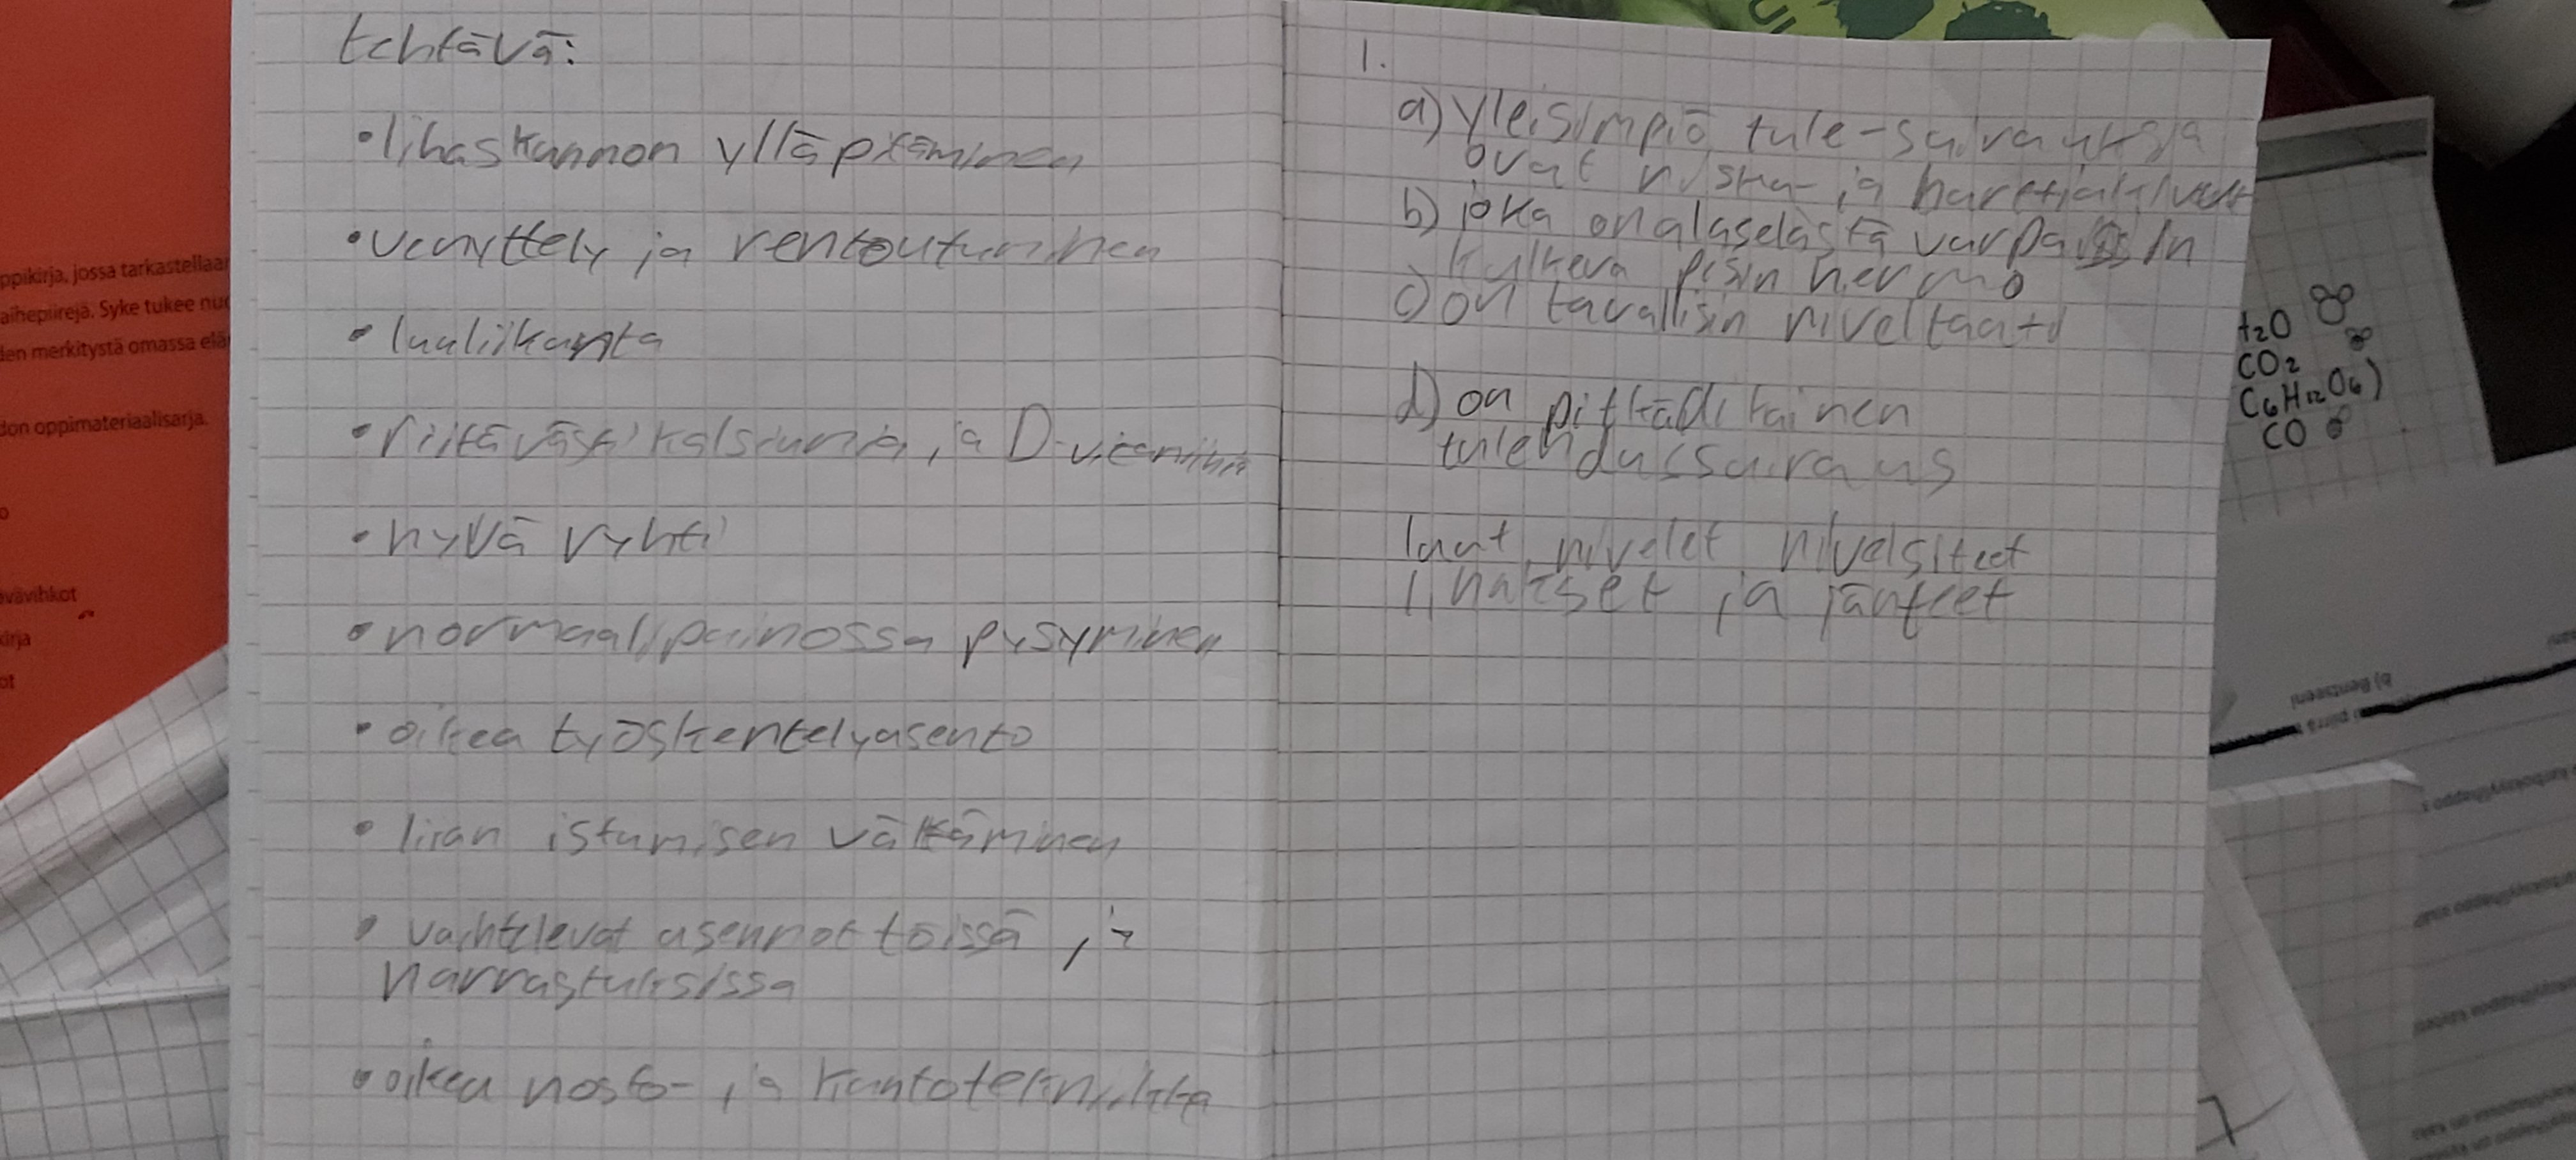 tehtävä:
•lihaskunnon ylläpitäminen
•venyttely ja rentoutuminen
•luuliikunta
•riitävästi kalsiumia ja D-vitamiinia
•hyvä ryhti
•normaalipainossa pysyminen
•oikea työskentelyasento
•liian istumisen välttäminen
•vaihtelevat asennot töissä ja
harrastuksissa
•oikea nosto- ja kantotekniikka
1.
a) yleisimpiä tule-sairauksia
ovat niska- ja hartiakivut
b) joka on alaselästä varpaisiin
kulkeva pisin hermo
c) on tavallisin niveltauti
d) on pitkäaikainen
tulehdussairaus
luut, nivelet nivelsiteet
lihakset ja jänteet
ppikirja, jossa tarkastellaan
aihepiirejä. Syke tukee
den merkitystä omassa
don oppimateriaalisarja.
vävihkot
kirja
ot
H₂O
CO₂
C₆H₁₂O₆)
CO
b) Bentseeni